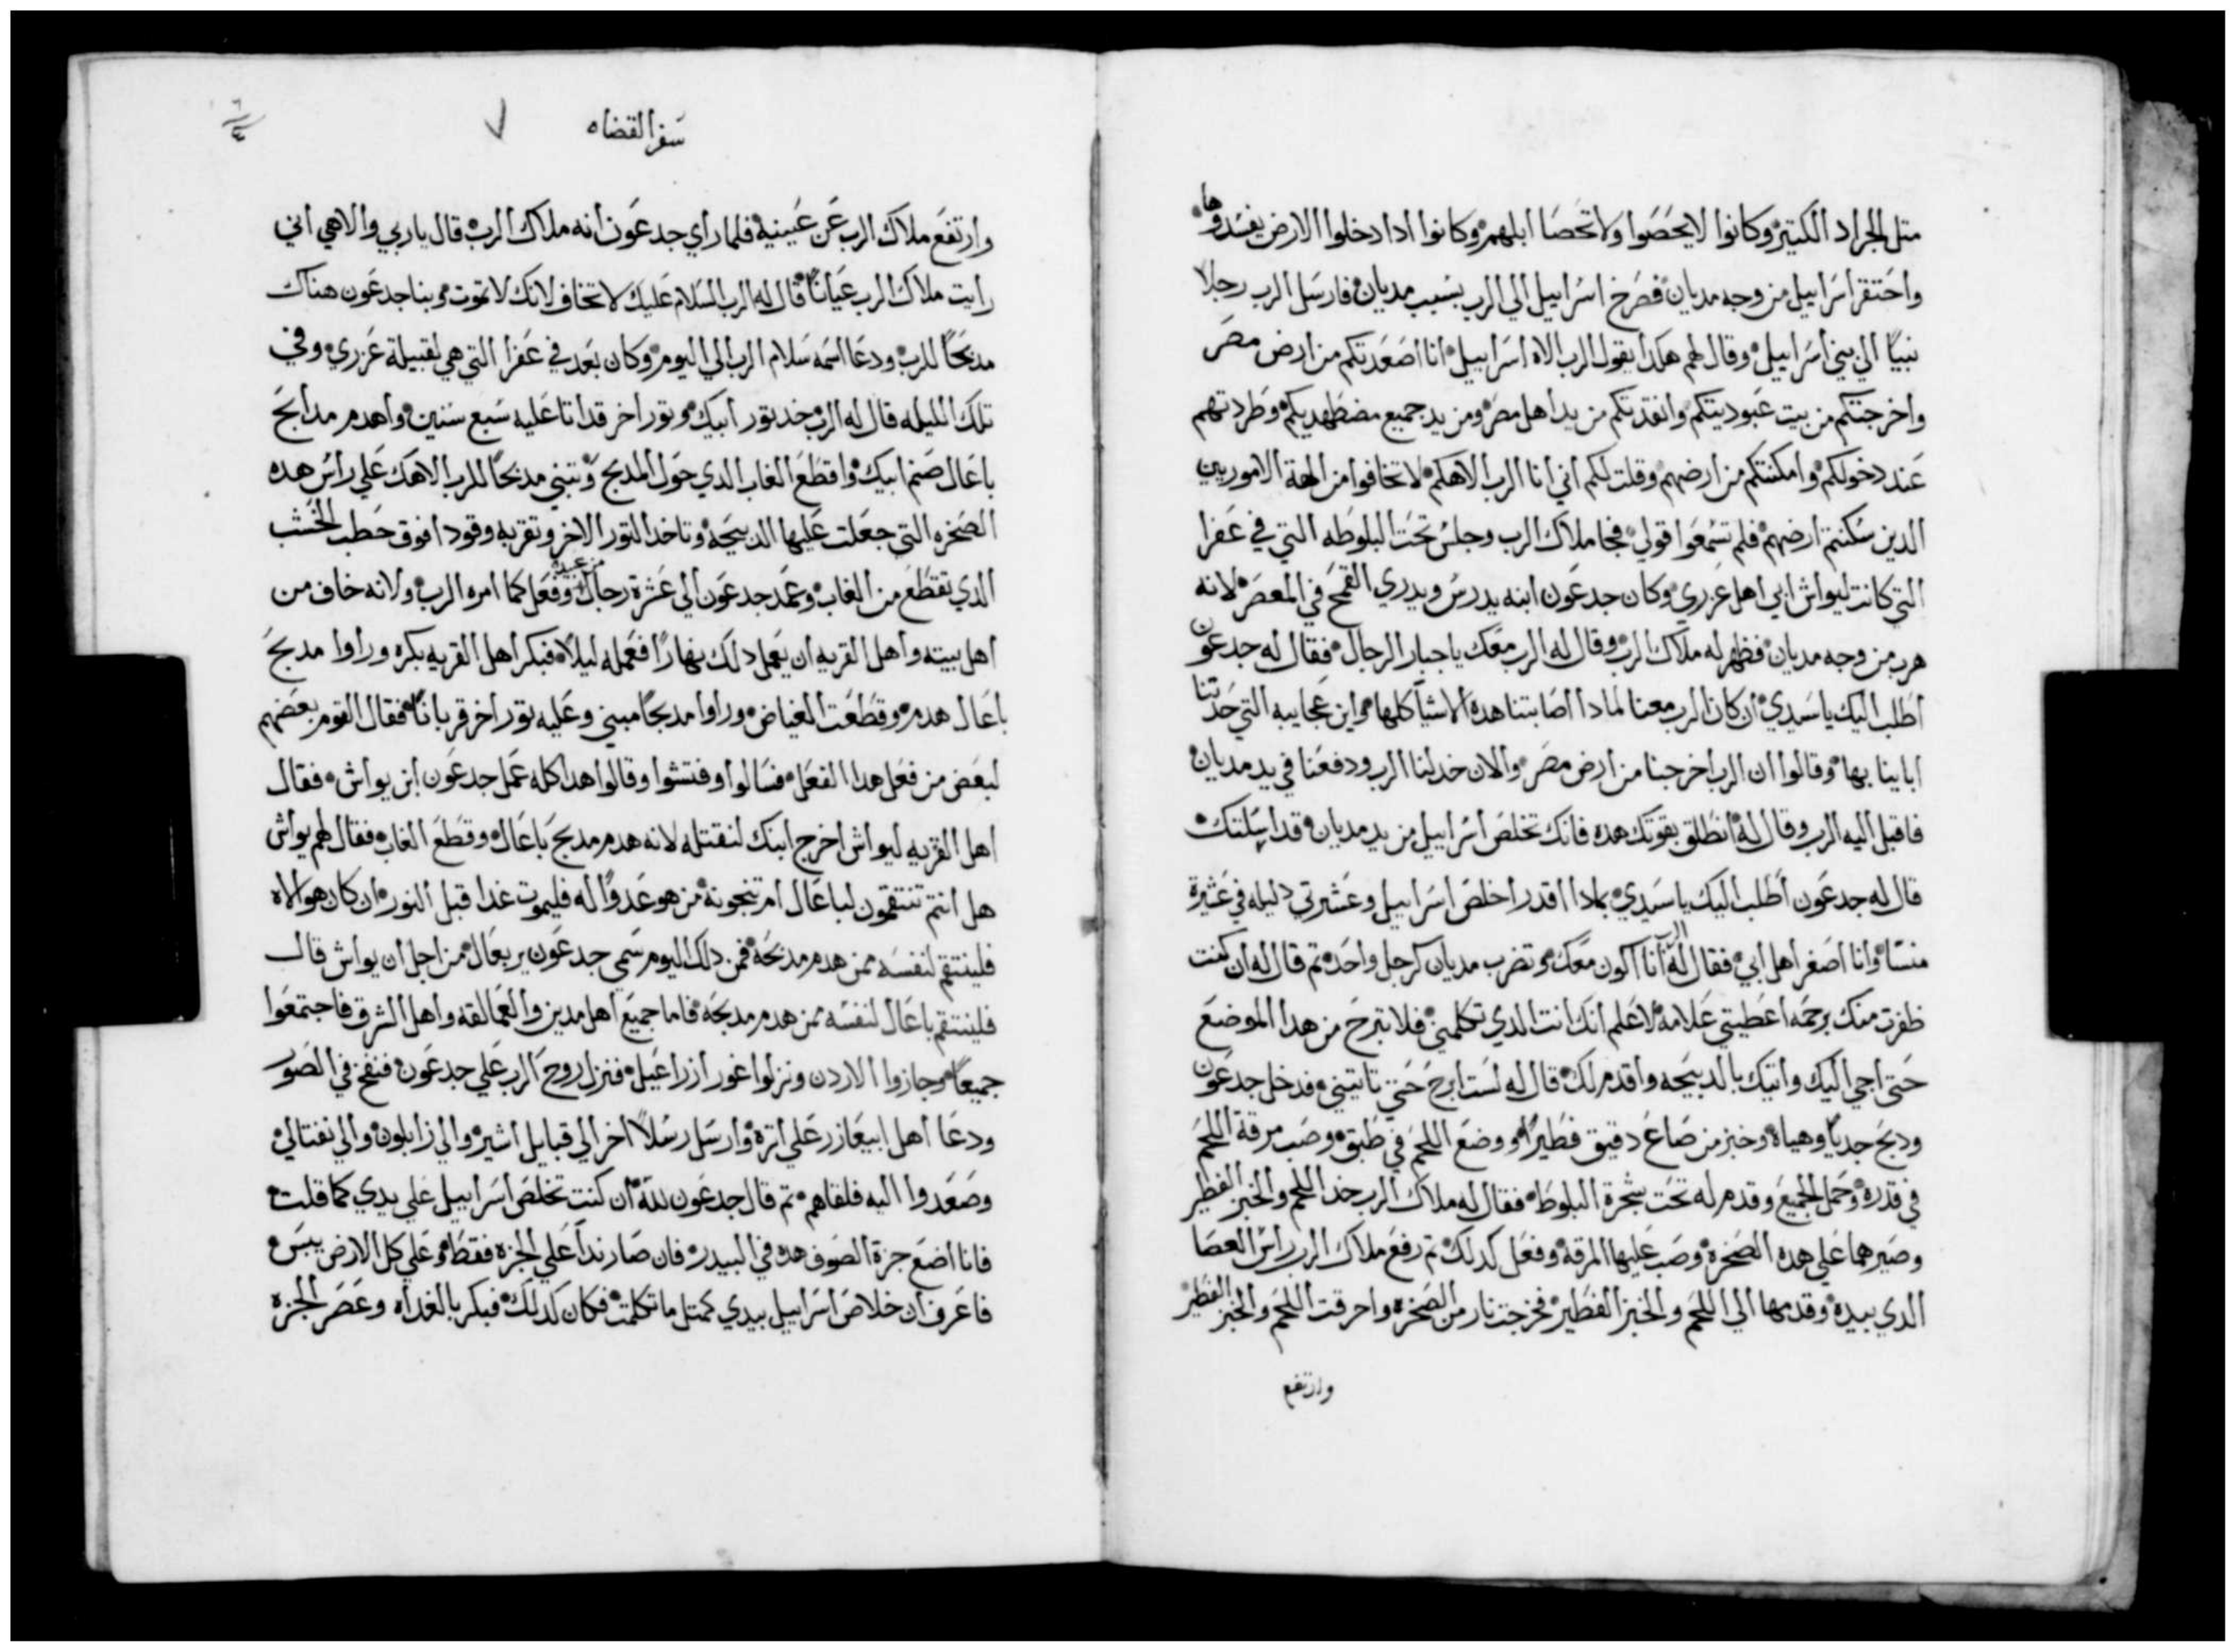 متل الجراد الكتير وكانوا لا يحصوا ولا تحصا ابلهم وكانوا ادا دخلوا الارض يفسدوها
واحتقر اسراييل من وجه مديان فصرخ اسراييل الي الرب بسبب مديان فارسل الرب رجلا
نبيًا الي بني اسراييل وقال لهم هكدا يقول الرب الاه اسراييل انا اصعدتكم من ارض مصر
واخرجتكم من بيت عبوديتكم وانقدتكم من يد اهل مصر ومن يد جميع مضطهديكم وطردتهم
عند دخولكم وامكنتكم من ارضهم وقلت لكم اني انا الرب الاهكم لا تخافوا من الهة الاموريين
الدين سكنتم ارضهم فلم تسمعوا قولي فجا ملاك الرب وجلس تحت البلوطه التي في عفرا
التي كانت ليواش ابي اهل عزري وكان جدعون ابنه يدرس ويدري القمح في المعصر لانه
هرب من وجه مديان فظهر له ملاك الرب وقال له الرب معك يا جبار الرجال فقال له جدعون
اطلب اليك يا سيدي ان كان الرب معنا لمادا اصابتنا هده الاشيا كلها واين عجايبه التي حدتنا
ابايينا بها وقالوا ان الرب اخرجنا من ارض مصر والان خدلنا الرب ودفعنا في يد مديان
فاقبل اليه الرب وقال له انطلق بقوتك هده فانك تخلص اسراييل من يد مديان قد ارسلتك
قال له جدعون اطلب اليك يا سيدي بمادا اقدر اخلص اسراييل وعشيرتي دليله في عشيرة
منسا وانا اصغر اهل ابي فقال له الرب انا اكون معك وتضرب مديان كرجل واحد تم قال له ان كنت
ظفرت منك برحمه اعطيتي علامة لاعلم انك انت الدي تكلمني فلا تبرح من هدا الموضع
حتى اجي اليك واتيك بالدبيحه واقدم لك قال له لست ابرح حتي تاتيني فدخل جدعون
ودبح جديًا وهياه وخبز من صاع دقيق فطيرًا ووضع اللحم في طبق وصب مرقة اللحم
في قدره وحمل الجميع وقدم له تحت شجرة البلوط فقال له ملاك الرب خد اللحم والخبز الفطير
وصيرهما علي هده الصخره وصب عليها المرقة وفعل كدلك تم رفع ملاك الرب راس العصا
الدي بيده وقدمها الي اللحم والخبز الفطير فخرجت نار من الصخرة واحرقت اللحم والخبز الفطير
وارتفع
سفر القضاه
٧
٦
٤
وارتفع ملاك الرب عن عينيه فلما راي جدعون انه ملاك الرب قال يا ربي والاهي اني
رايت ملاك الرب عيانًا قال له الرب السلام عليك لا تخاف لانك لا تموت وبنا جدعون هناك
مدبحًا للرب ودعا اسمه سلام الرب الي اليوم وكان بعد في عفرا التي هي لقبيلة عزري وفي
تلك الليله قال له الرب خد تور ابيك وتور اخر قد اتا عليه سبع سنين واهدم مدابح
باعال صنم ابيك واقطع الغاب الدي حول المدبح وتبني مدبحًا للرب الاهك علي راس هده
الصخره التي جعلت عليها الدبيحه وتاخد التور الاخر وتقربه وقودا فوق حطب الخشب
الدي تقطع من الغاب وعمد جدعون الي عشرة رجال من عبيده وفعل كما امره الرب ولانه خاف من
اهل بيته واهل القريه ان يعمل دلك نهارًا فعمله ليلًا فبكر اهل القريه بكره وراوا مدبح
باعال هدم وقطعت الغياض وراوا مدبحًا مبني وعليه تور اخر قربانًا فقال القوم بعضهم
لبعض من فعل هدا الفعل فسالوا وفتشوا وقالوا هدا كله عمل جدعون ابن يواش فقال
اهل القريه ليواش اخرج ابنك لنقتله لانه هدم مدبح باعال وقطع الغاب فقال لهم يواش
هل انتم تنتقمون لباعال ام تنجونه من هو عدوًا له فليموت غدا قبل النور ان كان هو الاه
فلينتقم لنفسه ممن هدم مدبحه فمن دلك اليوم سمي جدعون يربعال من اجل ان يواش قال
فلينتقم باعال لنفسه ممن هدم مدبحه فاما جميع اهل مدين والعمالقه واهل الشرق فاجتمعوا
جميعًا وجازوا الاردن ونزلوا غور ازراعيل فنزل روح الرب علي جدعون فنفخ في الصور
ودعا اهل ابيعازر علي اتره وارسل رسلًا اخر الي قبايل اشير والي زابلون والي نفتالي
وصعدوا اليه فلقاهم تم قال جدعون لله ان كنت تخلص اسراييل علي يدي كما قلت
فانا اضع جزة الصوف هده في البيدر فان صار نداً علي الجزه فقط وعلي كل الارض يبس
فاعرف ان خلاص اسراييل بيدي كمتل ما تكلمت فكان كدلك فبكر بالغداه وعصر الجزه